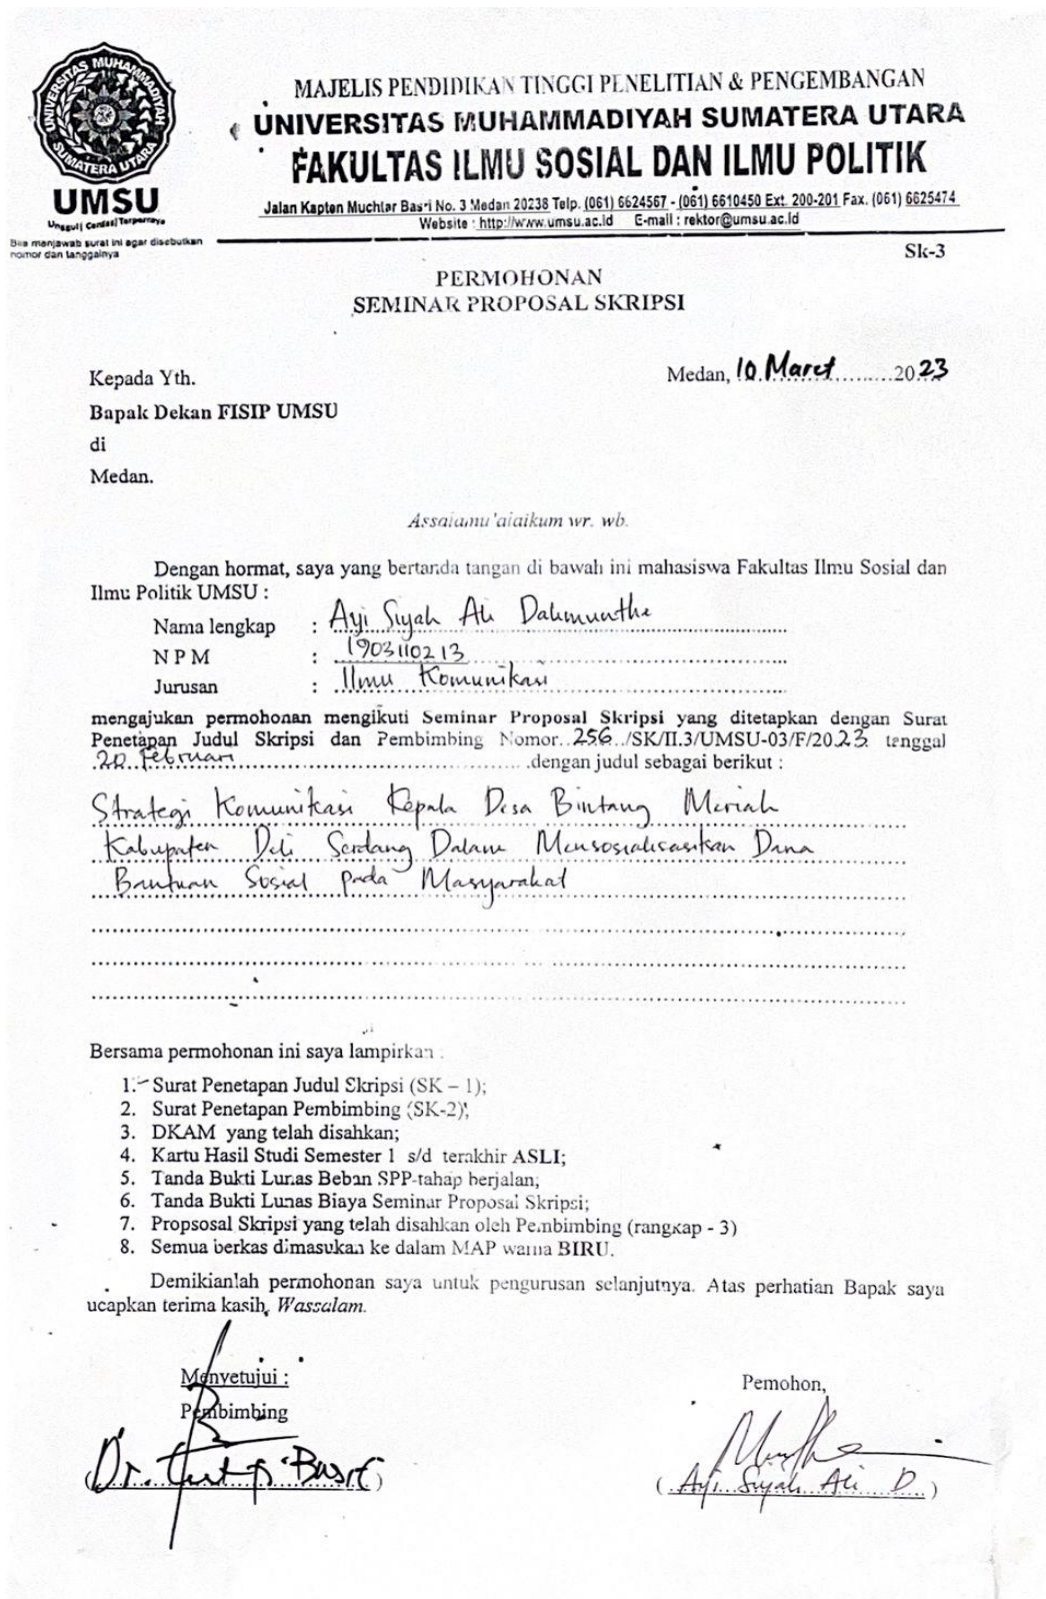 UNIVERSITAS MUHAMMADIYAH
SUMATERA UTARA
UMSU
Unggul| Cerdas| Terpercaya
Bila menjawab surat ini agar disebutkan
nomor dan tanggalnya
MAJELIS PENDIDIKAN TINGGI PENELITIAN & PENGEMBANGAN
UNIVERSITAS MUHAMMADIYAH SUMATERA UTARA
FAKULTAS ILMU SOSIAL DAN ILMU POLITIK
Jalan Kapten Muchtar Basri No. 3 Medan 20238 Telp. (061) 6624567 - (061) 6610450 Ext. 200-201 Fax. (061) 6625474
Website : http://www.umsu.ac.id E-mail : rektor@umsu.ac.id
Sk-3
PERMOHONAN
SEMINAR PROPOSAL SKRIPSI
Medan, 10 Maret 2023
Kepada Yth.
Bapak Dekan FISIP UMSU
di
Medan.
Assalamu'alaikum wr. wb.
Dengan hormat, saya yang bertanda tangan di bawah ini mahasiswa Fakultas Ilmu Sosial dan
Ilmu Politik UMSU :
Nama lengkap : Ayi Siyah Ali Dalimunthe
N P M : 1903110213
Jurusan : Ilmu Komunikasi
mengajukan permohonan mengikuti Seminar Proposal Skripsi yang ditetapkan dengan Surat
Penetapan Judul Skripsi dan Pembimbing Nomor 256 /SK/II.3/UMSU-03/F/2023 tanggal
20 Februari dengan judul sebagai berikut :
Strategi Komunikasi Kepala Desa Bintang Meriah
Kabupaten Deli Serdang Dalam Mensosialisasikan Dana
Bantuan Sosial pada Masyarakat
Bersama permohonan ini saya lampirkan :
1. Surat Penetapan Judul Skripsi (SK – 1);
2. Surat Penetapan Pembimbing (SK-2);
3. DKAM yang telah disahkan;
4. Kartu Hasil Studi Semester 1 s/d terakhir ASLI;
5. Tanda Bukti Lunas Beban SPP tahap berjalan;
6. Tanda Bukti Lunas Biaya Seminar Proposal Skripsi;
7. Propsosal Skripsi yang telah disahkan oleh Pembimbing (rangkap - 3)
8. Semua berkas dimasukan ke dalam MAP warna BIRU.
Demikianlah permohonan saya untuk pengurusan selanjutnya. Atas perhatian Bapak saya
ucapkan terima kasih, Wassalam.
Menyetujui :
Pembimbing
(Dr. Basit)
Pemohon,
(Ayi Siyah Ali D.)